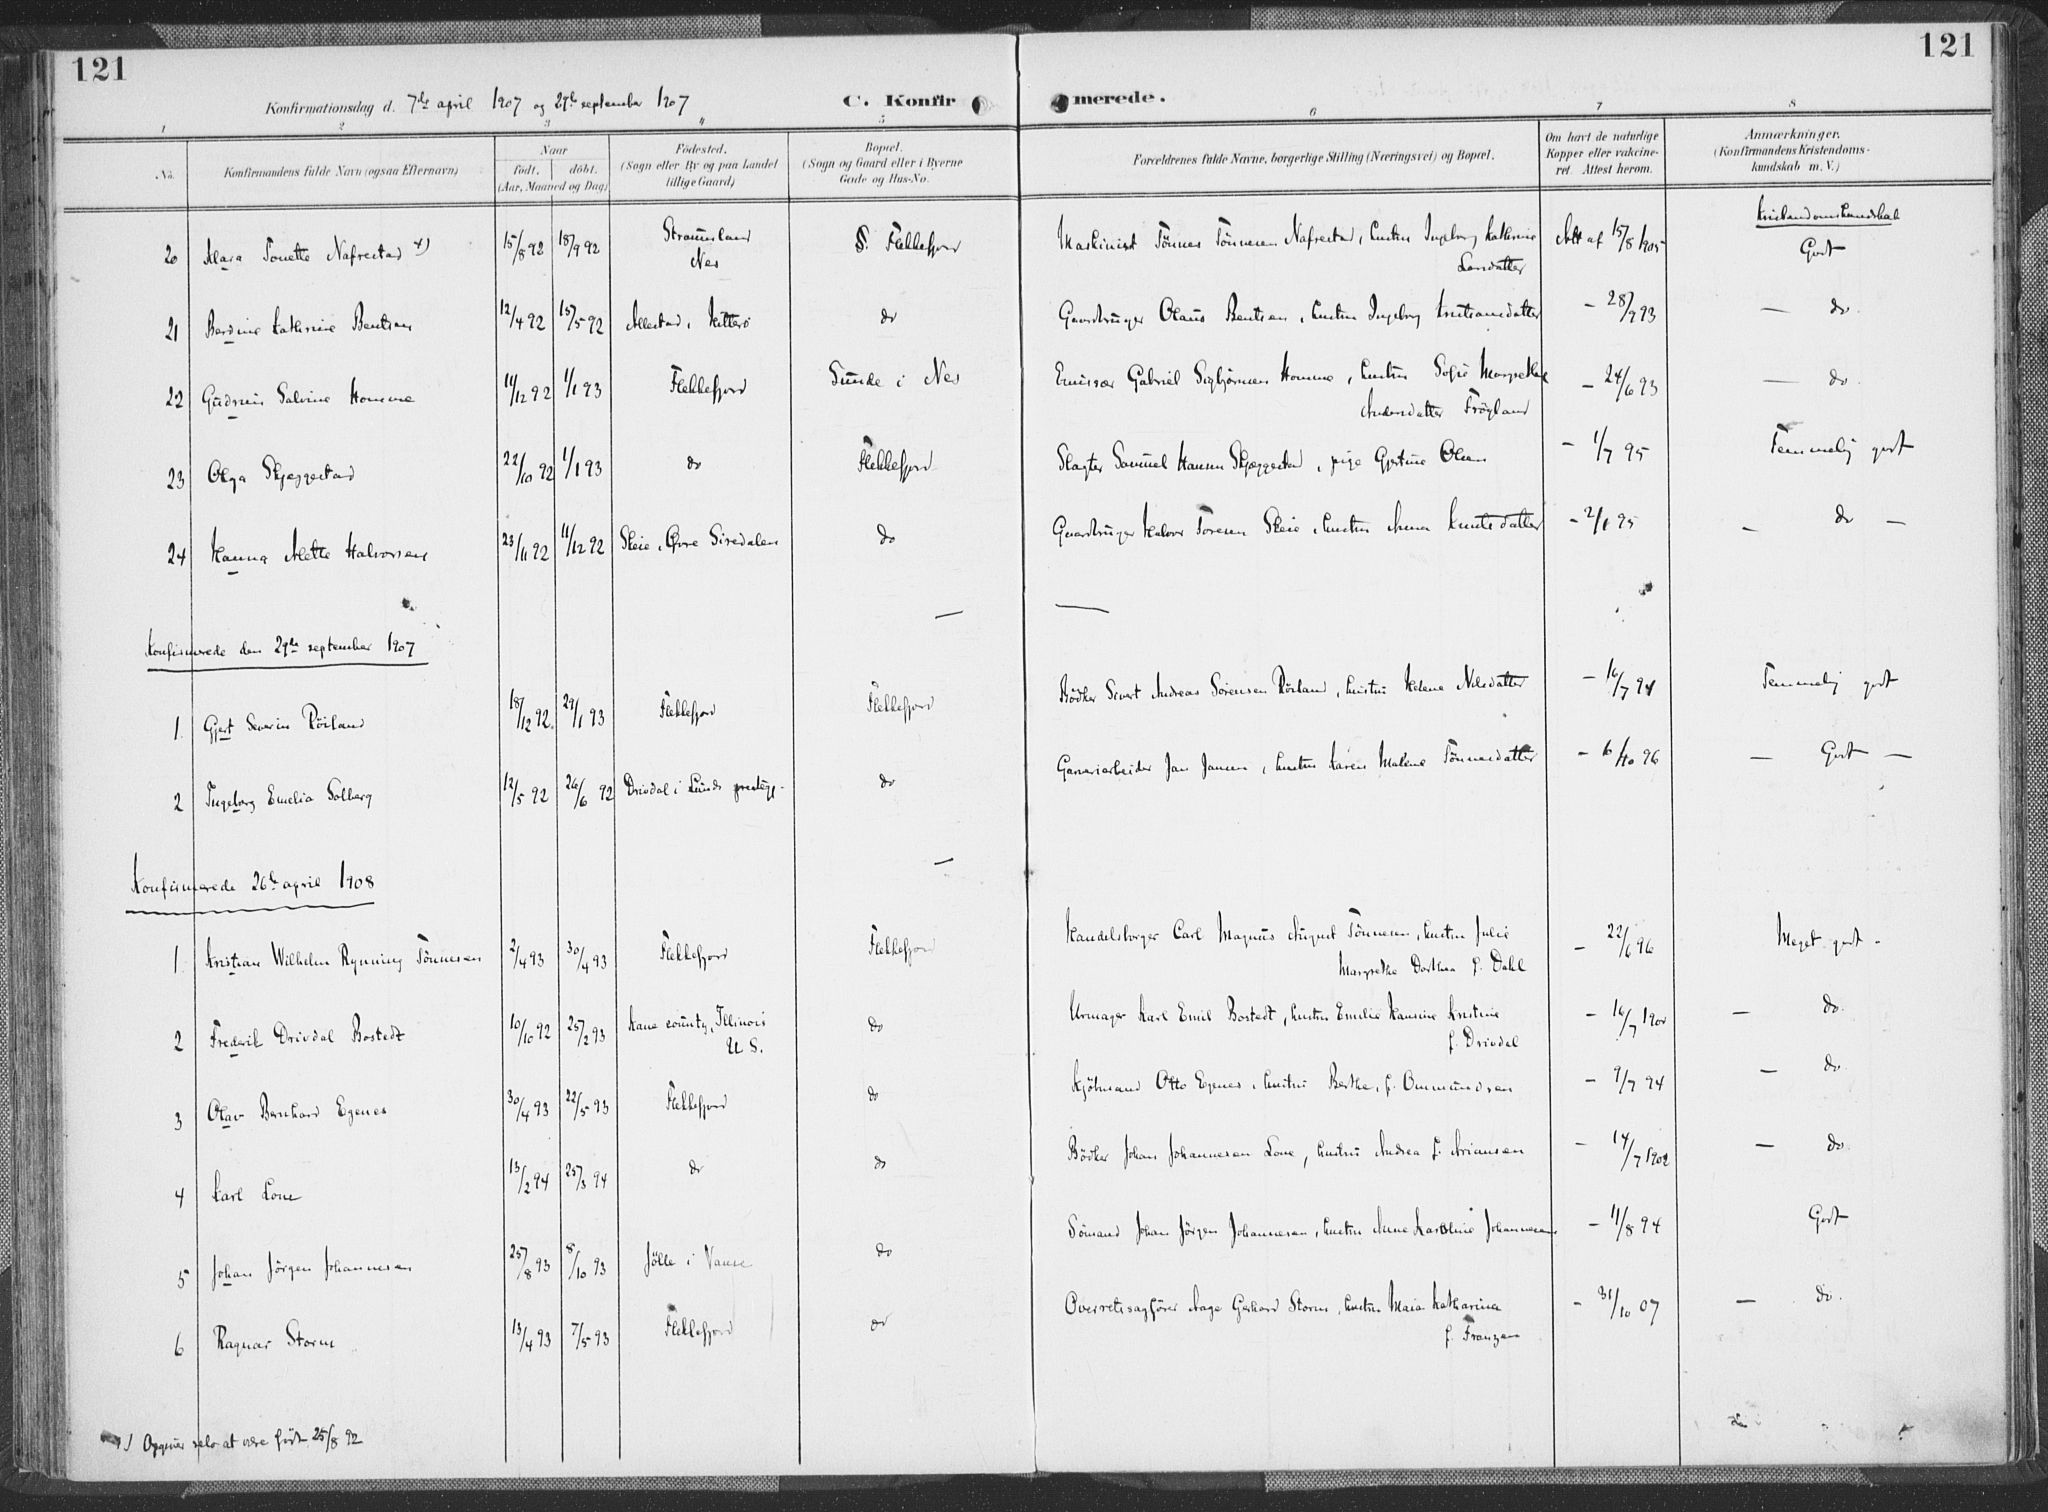 121
121
Konfirmationsdag d. 7de april 1907 og 29de september 1907
C. Konfirmerede.
1 2 3 4 5 6 7 8
No.
Konfirmandens fulde Navn (ogsaa Efternavn)
Naar
født. døbt.
(Aar, Maaned og Dag)
Födested.
(Sogn eller By og paa Landet
tillige Gaard)
Bopæl.
(Sogn og Gaard eller i Byerne
Gade og Hus-No.
Forældrenes fulde Navne, borgerlige Stilling (Næringsvei) og Bopæl.
Om havt de naturlige
Kopper eller vakcine-
ret. Attest herom.
Anmærkninger.
(Konfirmandens Kristendoms-
kundskab m. V.)
Kristendomskundskab
20 Klara Tonette Nafrestad 15/8 92 18/9 92 Straumland Nes S. Flekkefjord Maskinist Tönnes Tönnesen Nafrestad, hustru Ingeborg Kathrine Larsdatter Att af 15/8 1905 Godt
21 Berdine Kathrine Bentsen 12/4 92 15/5 92 Allestad, Hitterö do Gaardbruger Olaus Bentsen, hustru Ingeborg Kristiansdatter - 28/7 93 - do.
22 Gudrun Salvine Homme 11/12 92 1/1 93 Flekkefjord Sunde i Nes Emissær Gabriel Sigbjörnsen Homme, hustru Sofie Margrethe Andersdatter Fröyland - 24/6 93 - do.
23 Olga Skjeggestad 22/10 92 1/1 93 do Flekkefjord Slagter Samuel Hansen Skjæggestad, pige Gjertine Olsen - 1/7 95 Temmelig godt
24 Hanna Alette Halvorsen 23/11 92 11/12 92 Skeie, Øvre Siredalen do Gaardbruger Halvor Toresen Skeie, hustru Anna Knutsdatter - 2/1 95 - do -
Konfirmerede den 29de september 1907
1 Gjert Severin Röiland 18/12 92. 29/1 93 Flekkefjord Flekkefjord Bödker Sivert Andreas Sörensen Röiland, hustru Helene Nilsdatter - 16/7 94 Temmelig godt
2 Ingeborg Emelia Solberg 12/5 92 26/6 92 Drivdal i Lunds prestegj. do Garveriarbeider Jan Jansen, hustru Karen Malene Tönnesdatter - 6/10 96 - Godt -
Konfirmerede 26de april 1908
1 Kristian Wilhelm Rynning Tönnesen 2/4 93 30/4 93 Flekkefjord Flekkefjord Handelsborger Carl Magnus August Tönnesen, hustru Julie Margrethe Dorthea f. Dahl - 22/6 96 Meget godt -
2 Frederik Drivdal Bostedt 10/10 92 25/2 93 Kane county, Illinois U S. do Urmager Karl Emil Bostedt, hustru Emilie Hansine Kristine f. Drivdal - 16/7 1900 - do.
3 Olav Bernhard Egenes 30/4 93 22/5 93 Flekkefjord do Kjöbmand Otto Egenes, hustru Berthe, f. Ommundsen - 9/7 94 - do.
4 Karl Lone 13/2 94 25/3 94 do do Bödker Johan Johannesen Lone, hustru Andrea f. Ariansen - 14/7 1902 - do.
5 Johan Jörgen Johannesen 25/8 93 8/10 93 Jölle i Vanse do Sömand Johan Jörgen Johannesen, hustru Anne Karoline Johannesen - 11/8 94 Godt
6 Ragnar Storm 13/4 93 7/5 93 Flekkefjord do Overretssagförer Aage Gerhard Storm, hustru Maia Katharina f. Franzen - 31/10 07 - do.
Opgiver selv at være födt 25/8 92